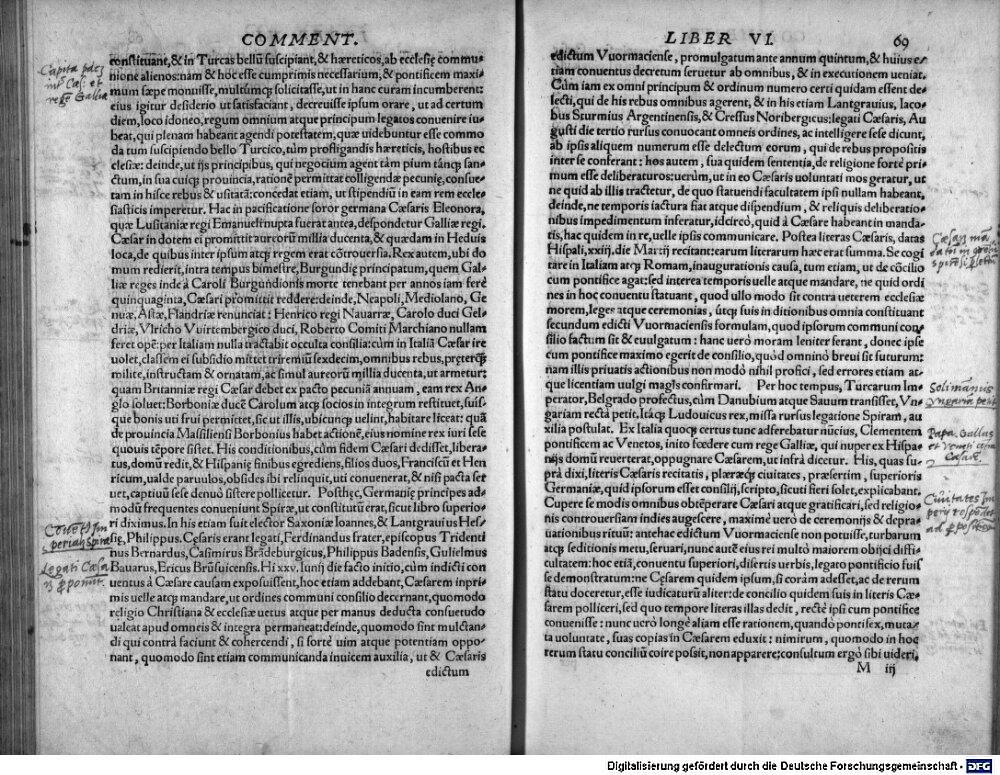 COMMENT.
constituant, & in Turcas bellũ suscipiant, & hæreticos, ab ecclesię commu-
nione alienos: nam & hoc esse cumprimis necessarium, & pontificem maxi-
mum sæpe monuisse, multumq́; solicitasse, ut in hanc curam incumberent:
eius igitur desiderio ut satisfaciant, decreuisse ipsum orare, ut ad certum
diem, loco idoneo, regum omnium atque principum legatos conuenire iu-
beat, qui plenam habeant agendi potestatem, quæ uidebuntur esse commo
da tum suscipiendo bello Turcico, tùm profligandis hæreticis, hostibus ec
clesiæ: deinde, ut ijs principibus, qui negocium agent tàm pium tãnq́; san-
ctum, in sua cuiq́; prouincia, rationẽ permittat colligendæ pecunię, consue-
tam in hisce rebus & usitatã: concedat etiam, ut stipendiũ in eam rem eccle-
siasticis imperetur. Hac in pacificatione soror germana Cæsaris Eleonora,
quæ Lusitaniæ regi Emanueli nupta fuerat antea, despondetur Galliæ regi.
Cæsar in dotem ei promittit aureorũ millia ducenta, & quædam in Heduis
loca, de quibus inter ipsum atq́; regem erat cõtrouersia. Rex autem, ubi do
mum redierit, intra tempus bimestre, Burgundię principatum, quem Gal-
liæ reges inde à Caroli Burgundionis morte tenebant per annos iam ferè
quinquaginta, Cæsari promittit reddere: deinde, Neapoli, Mediolano, Ge
nuæ, Astæ, Flandriæ renunciat: Henrico regi Nauarræ, Carolo duci Gel-
driæ, Vlricho Vuirtembergico duci, Roberto Comiti Marchiano nullam
feret opẽ: per Italiam nulla tractabit occulta consilia: cùm in Italiã Cæsar ire
uolet, classem ei subsidio mittet triremiũ sexdecim, omnibus rebus, pręterq̃
milite, instructam & ornatam, ac simul aureorũ millia ducenta, ut armetur:
quam Britanniæ regi Cæsar debet ex pacto pecuniã annuam, eam rex An-
glo soluet: Borboniæ ducẽ Carolum atq́; socios in integrum restituet, suis-
que bonis uti frui permittet, sic ut illis, ubicunq́; uelint, habitare liceat: quã
de prouincia Massiliensi Borbonius habet actionẽ, eius nomine rex iuri sese
quouis tẽpore sistet. His conditionibus, cùm fidem Cæsari dedisset, libera-
tus, domũ redit, & Hispanię finibus egrediens, filios duos, Franciscũ et Hen
ricum, ualde paruulos, obsides ibi relinquit, uti conuenerat, & nisi pacta ser
uet, captiuũ sese denuò sistere pollicetur. Posthęc, Germanię principes ad-
modũ frequentes conueniunt Spiræ, ut constitutũ erat, sicut libro superio-
ri diximus. In his etiam fuit elector Saxoniæ Ioannes, & Lantgrauius Hes-
siæ, Philippus. Cęsaris erant legati, Ferdinandus frater, episcopus Tridenti
nus Bernardus, Casimirus Brãdeburgicus, Philippus Badensis, Gulielmus
Bauarus, Ericus Brũsuicensis. Hi xxv. Iunij die facto initio, cùm indicti con
uentus à Cæsare causam exposuissent, hoc etiam addebant, Cæsarem inpri-
mis uelle atq́; mandare, ut ordines communi consilio decernant, quomodo
religio Christiana & ecclesiæ uetus atque per manus deducta consuetudo
ualeat apud omneis & integra permaneat: deinde, quomodo sint mulctan-
di qui contrà faciunt & cohercendi, si fortè uim atque potentiam oppo-
nant, quomodo sint etiam communicanda inuicem auxilia, ut & Cæsaris
edictum
Legati Cæsa
LIBER VI. 69
edictum Vuormaciense, promulgatum ante annum quintum, & huius e-
tiam conuentus decretum seruetur ab omnibus, & in executionem ueniat.
Cùm iam ex omni principum & ordinum numero certi quidam essent de-
lecti, qui de his rebus omnibus agerent, & in his etiam Lantgrauius, Iaco-
bus Sturmius Argentinensis, & Cressus Noribergicus: legati Cæsaris, Au
gusti die tertio rursus conuocant omneis ordines, ac intelligere sese dicunt,
ab ipsis aliquem numerum esse delectum eorum, qui de rebus propositis
inter se conferant: hos autem, sua quidem sententia, de religione fortè pri-
mum esse deliberaturos: uerùm, ut in eo Cæsaris uoluntati mos geratur, ut
ne quid ab illis tractetur, de quo statuendi facultatem ipsi nullam habeant,
deinde, ne temporis iactura fiat atque dispendium, & reliquis deliberatio-
nibus impedimentum inferatur, idcircò, quid à Cæsare habeant in manda-
tis, hac quidem in re, uelle ipsis communicare. Postea literas Cæsaris, datas
Hispali, xxiij, die Martij recitant: earum literarum hæc erat summa. Se cogi
tare in Italiam atq́; Romam, inaugurationis causa, tum etiam, ut de cõcilio
cum pontifice agat: sed interea temporis uelle atque mandare, ne quid ordi
nes in hoc conuentu statuant, quod ullo modo sit contra ueterem ecclesiæ
morem, leges atque ceremonias, útq́; suis in ditionibus omnia constituant
secundum edicti Vuormaciensis formulam, quod ipsorum communi con-
silio factum sit & euulgatum: hanc uerò moram leniter ferant, donec ipse
cum pontifice maximo egerit de consilio, quòd omninò breui sit futurum:
nam illis priuatis actionibus non modò nihil profici, sed errores etiam at-
que licentiam uulgi magis confirmari. Per hoc tempus, Turcarum Im-
perator, Belgrado profectus, cùm Danubium atque Sauum transisset, Vn-
gariam rectà petit. Itáq́; Ludouicus rex, missa rursus legatione Spiram, au
xilia postulat. Ex Italia quoq́; certus tunc adferebatur nũcius, Clementem
pontificem ac Venetos, inito fœdere cum rege Galliæ, qui nuper ex Hispa-
nijs domũ reuerterat, oppugnare Cæsarem, ut infrà dicetur. His, quas su-
prà dixi, literis Cæsaris recitatis, pleræq́; ciuitates, præsertim, superioris
Germaniæ, quid ipsorum esset consilij, scripto, sicuti fieri solet, explicabant.
Cupere se modis omnibus obtẽperare Cæsari atque gratificari, sed religio-
nis controuersiam indies augescere, maximè uerò de ceremonijs & depra-
uationibus rituũ: antehac edictum Vuormaciense non potuisse, turbarum
atq́; seditionis metu, seruari, nunc autẽ eius rei multò maiorem obijci diffi-
cultatem: hoc etiã, conuentu superiori, disertis uerbis, legato pontificio fuis
se demonstratum: ne Cęsarem quidem ipsum, si coràm adesset, ac de rerum
statu doceretur, esse iudicaturũ aliter: de concilio quidem suis in literis Cæ-
sarem polliceri, sed quo tempore literas illas dedit, rectè ipsi cum pontifice
conuenisse: nunc uerò longè aliam esse rationem, quando pontifex, muta-
ta uoluntate, suas copias in Cæsarem eduxit: nimirum, quomodo in hoc
rerum statu conciliũ coire possit, non apparere: consultum ergò sibi uideri,
M iij
Solimannus
Vngariã petit
Papa. Gallus
et Veneti cõtra
Cæsarẽ.
Digitalisierung gefördert durch die Deutsche Forschungsgemeinschaft - DFG